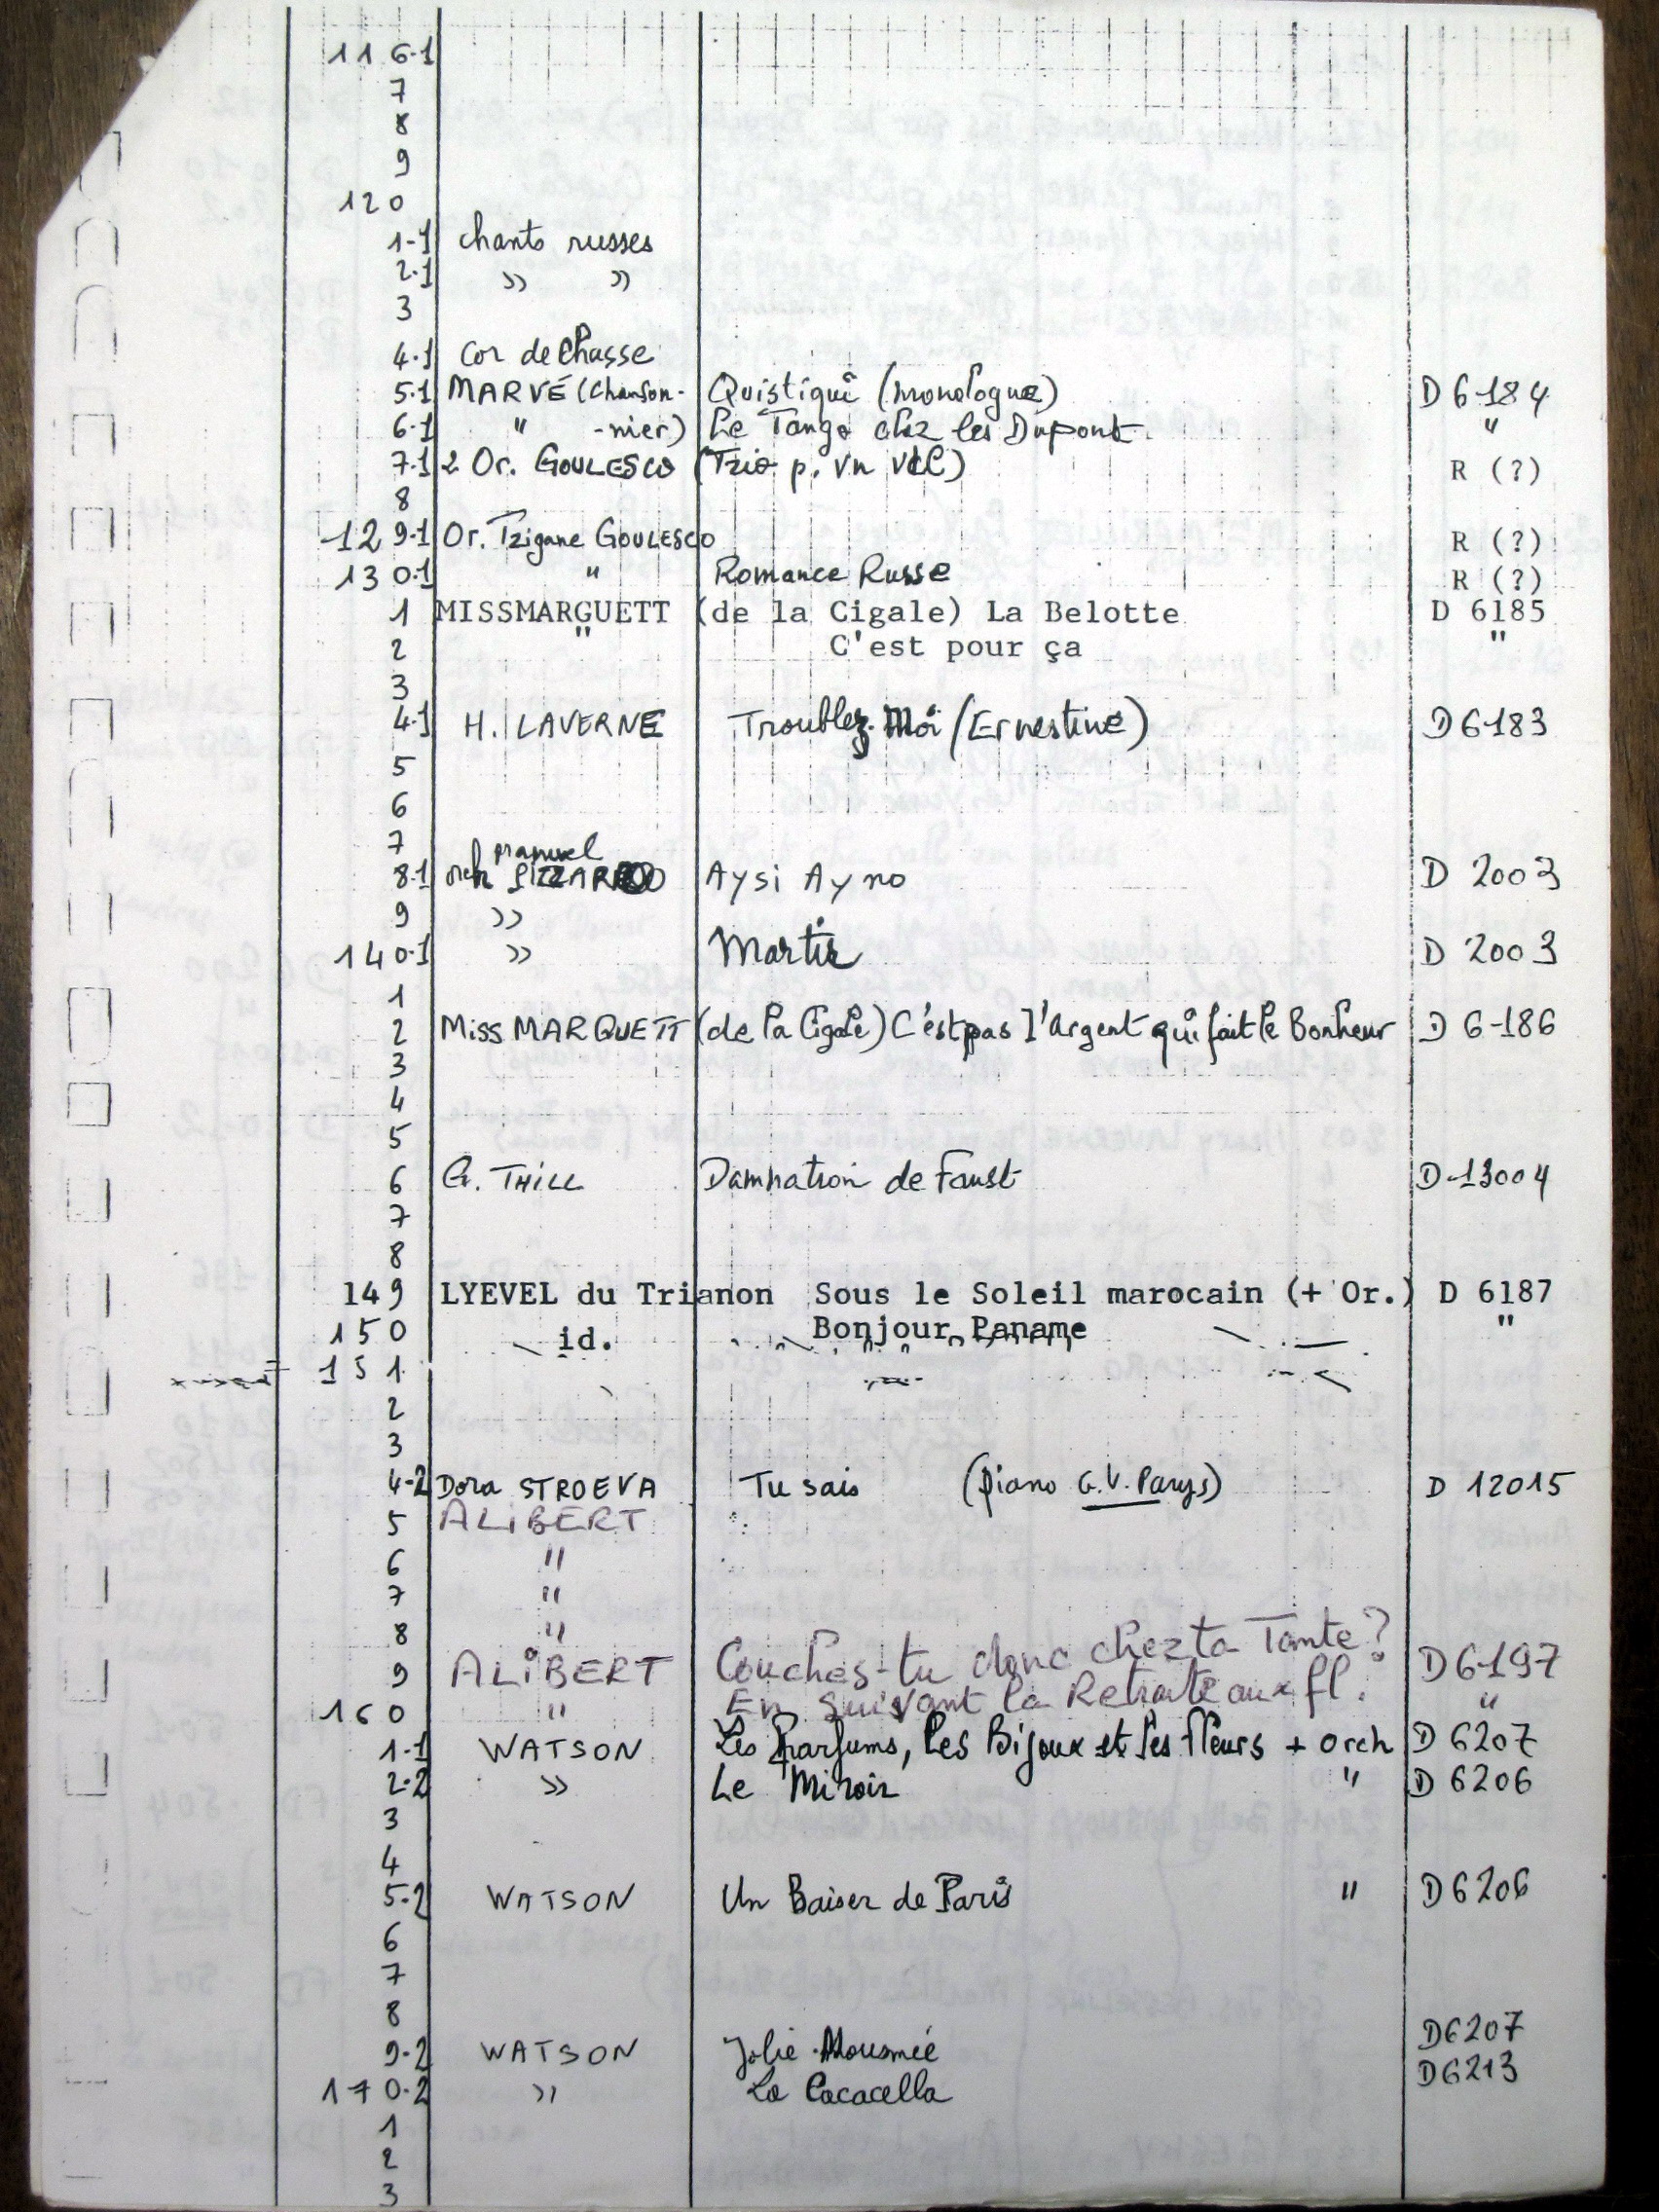 116-1
7
8
9
120
1-1 chants russes
2.1 » »
3
4.1 Cor de Chasse
5.1 MARVÉ (Chanson- Quistiqui (monologue) D 6184
6.1 " -nier) Le Tango chez les Dupont. "
7.1 2 Or. GOULESCO (Trio p. Vn VLC) R (?)
8
129.1 Or. Tzigane GOULESCO R (?)
130.1 " Romance Russe R (?)
1 MISSMARGUETT (de la Cigale) La Belotte D 6185
2 " C'est pour ça "
3
4.1 H. LAVERNE Troublez-Moi (Ernestine) D 6183
5
6
7
8.1 orch manuel PIZZARRO Aysi Ayno D 2003
9 »
140.1 » Martir D 2003
1
2 Miss MARQUETT (de la Cigale) C'est pas l'Argent qui fait le Bonheur D 6186
3
4
5
6 G. THILL Damnation de Faust D 13004
7
8
149 LYEVEL du Trianon Sous le Soleil marocain (+ Or.) D 6187
150 id. Bonjour Paname "
151
2
3
4-2 Dora STROEVA Tu sais (piano G.V. Parys) D 12015
5 ALIBERT
6 "
7 "
8 "
9 ALIBERT Couches-tu donc chez ta Tante? D 6197
160 " En suivant la Retraite aux fl. "
1-1 WATSON Les Parfums, les Bijoux et les fleurs + orch D 6207
2-2 » Le Miroir " D 6206
3
4
5-2 WATSON Un Baiser de Paris " D 6206
6
7
8
9-2 WATSON Jolie Mousmée D6207
170.2 » La Cacacella D6213
1
2
3